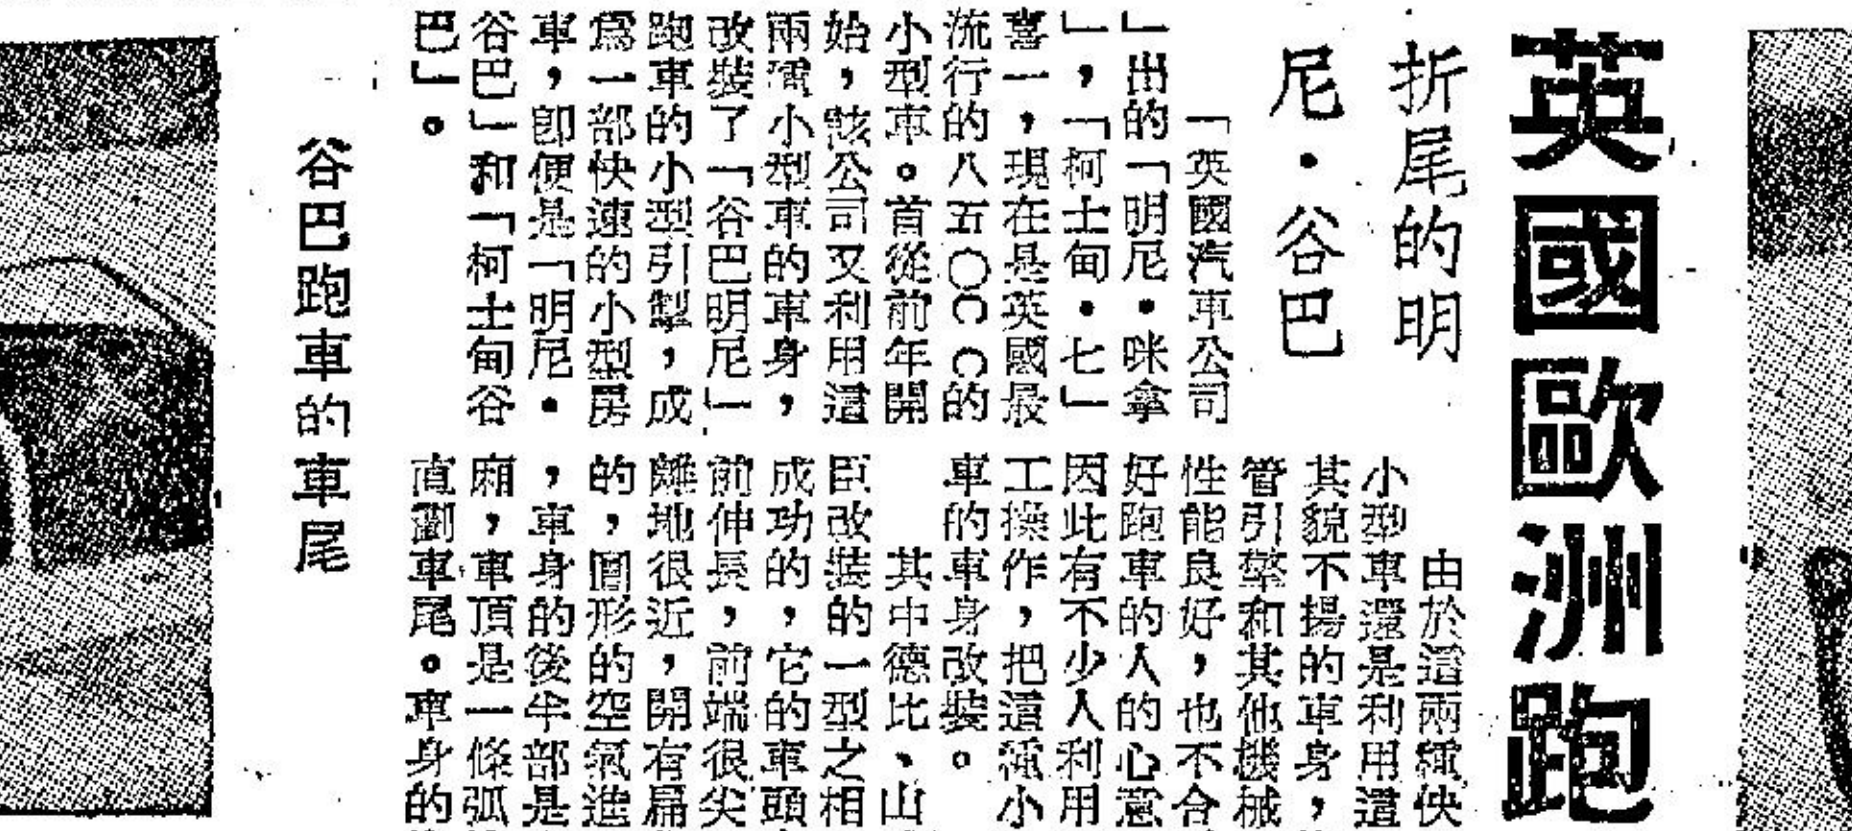 英國歐洲跑
折尾的明
尼·谷巴
「英國汽車公司
」出的「明尼·咪拿
」,「柯士甸·七」
喜一,現在是英國最
流行的八五〇CC的
小型車。首從前年開
始,該公司又利用這
兩種小型車的車身,
改裝了「谷巴明尼」
跑車的小型引擎,成
爲一部快速的小型房
車,卽便是「明尼·
谷巴」和「柯士甸谷
巴」。
由於這兩種快
小型車還是利用這
其貌不揚的車身,
管引擎和其他機械
性能良好,也不合
好跑車的人的心意
因此有不少人利用
工操作,把這種小
車的車身改裝。
其中德比、山
臣改裝的一型之相
成功的,它的車頭
前伸長,前端很尖
離地很近,開有扁
的,圓形的空氣進
,車身的後半部是
廂,車頂是一條弧
直劃車尾。車身的
谷巴跑車的車尾